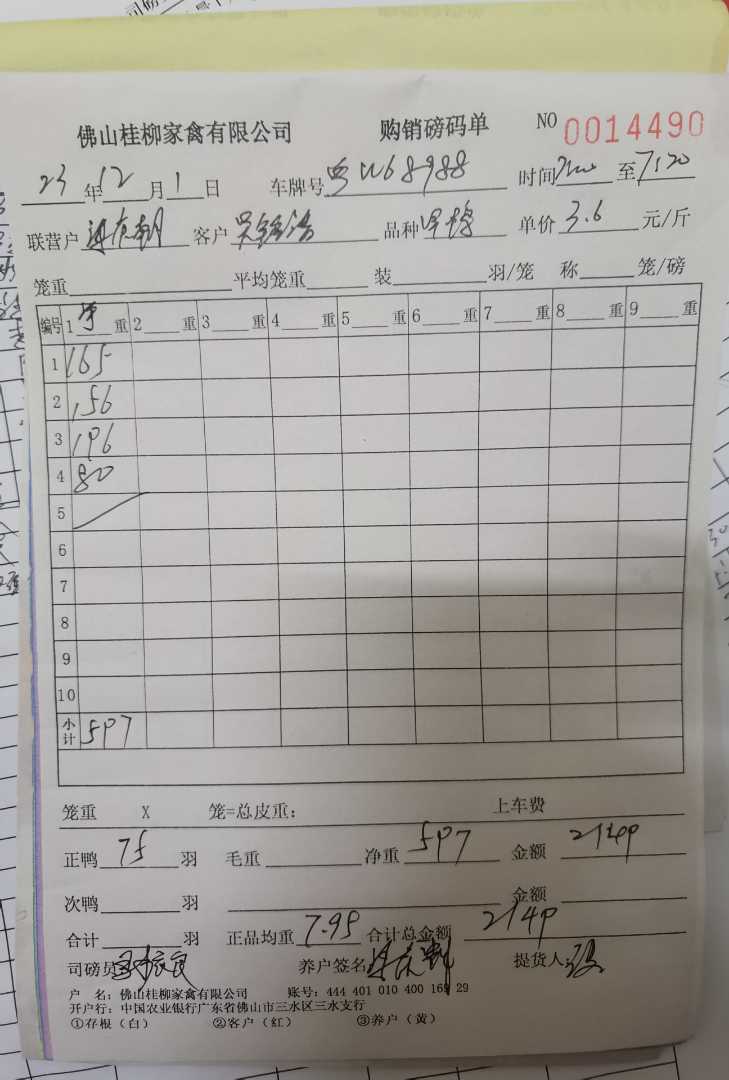 佛山桂柳家禽有限公司 购销磅码单 NO 0014490
23年12月1日 车牌号粤W68988 时间7:00至7:20
联营户 客户 品种 单价3.6元/斤
笼重 平均笼重 装 羽/笼 称 笼/磅
编号 1 重 2 重 3 重 4 重 5 重 6 重 7 重 8 重 9 重
1 165
2 156
3 196
4 80
5
6
7
8
9
10
小计 597
笼重 X 笼=总皮重: 上车费
正鸭75羽 毛重 净重597 金额2149
次鸭 羽 金额
合计 羽 正品均重7.95 合计总金额2149
司磅员 养户签名 提货人
户 名: 佛山桂柳家禽有限公司 账号: 444 401 010 400 169 29
开户行: 中国农业银行广东省佛山市三水区三水支行
①存根(白) ②客户(红) ③养户(黄)